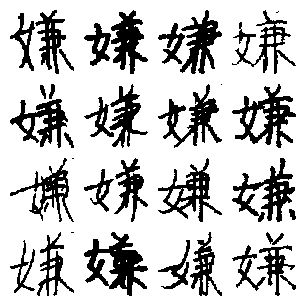 嫌嫌嫌嫌
嫌嫌嫌嫌
嫌嫌嫌嫌
嫌嫌嫌嫌